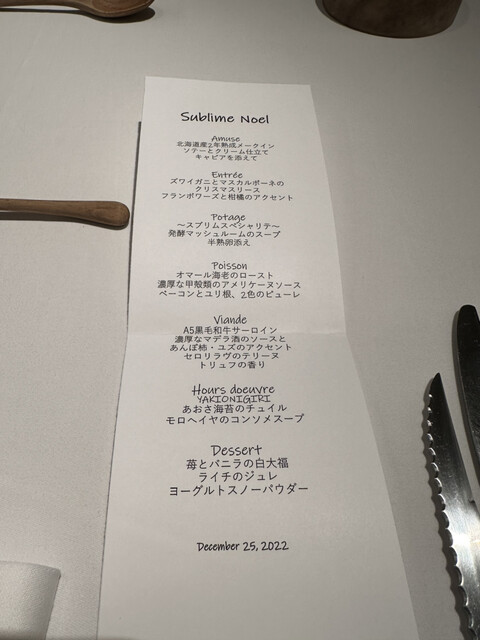 Sublime Noel
Amuse
北海道産2年熟成メークイン
ソテーとクリーム仕立て
キャビアを添えて
Entrée
ズワイガニとマスカルポーネの
クリスマスリース
フランボワーズと柑橘のアクセント
Potage
～スブリムスペシャリテ～
発酵マッシュルームのスープ
半熟卵添え
Poisson
オマール海老のロースト
濃厚な甲殻類のアメリケーヌソース
ベーコンとユリ根、2色のピューレ
Viande
A5黒毛和牛サーロイン
濃厚なマデラ酒のソースと
あんぽ柿・ユズのアクセント
セロリラヴのテリーヌ
トリュフの香り
Hours doeuvre
YAKIONIGIRI
あおさ海苔のチュイル
モロヘイヤのコンソメスープ
Dessert
苺とバニラの白大福
ライチのジュレ
ヨーグルトスノーパウダー
December 25, 2022